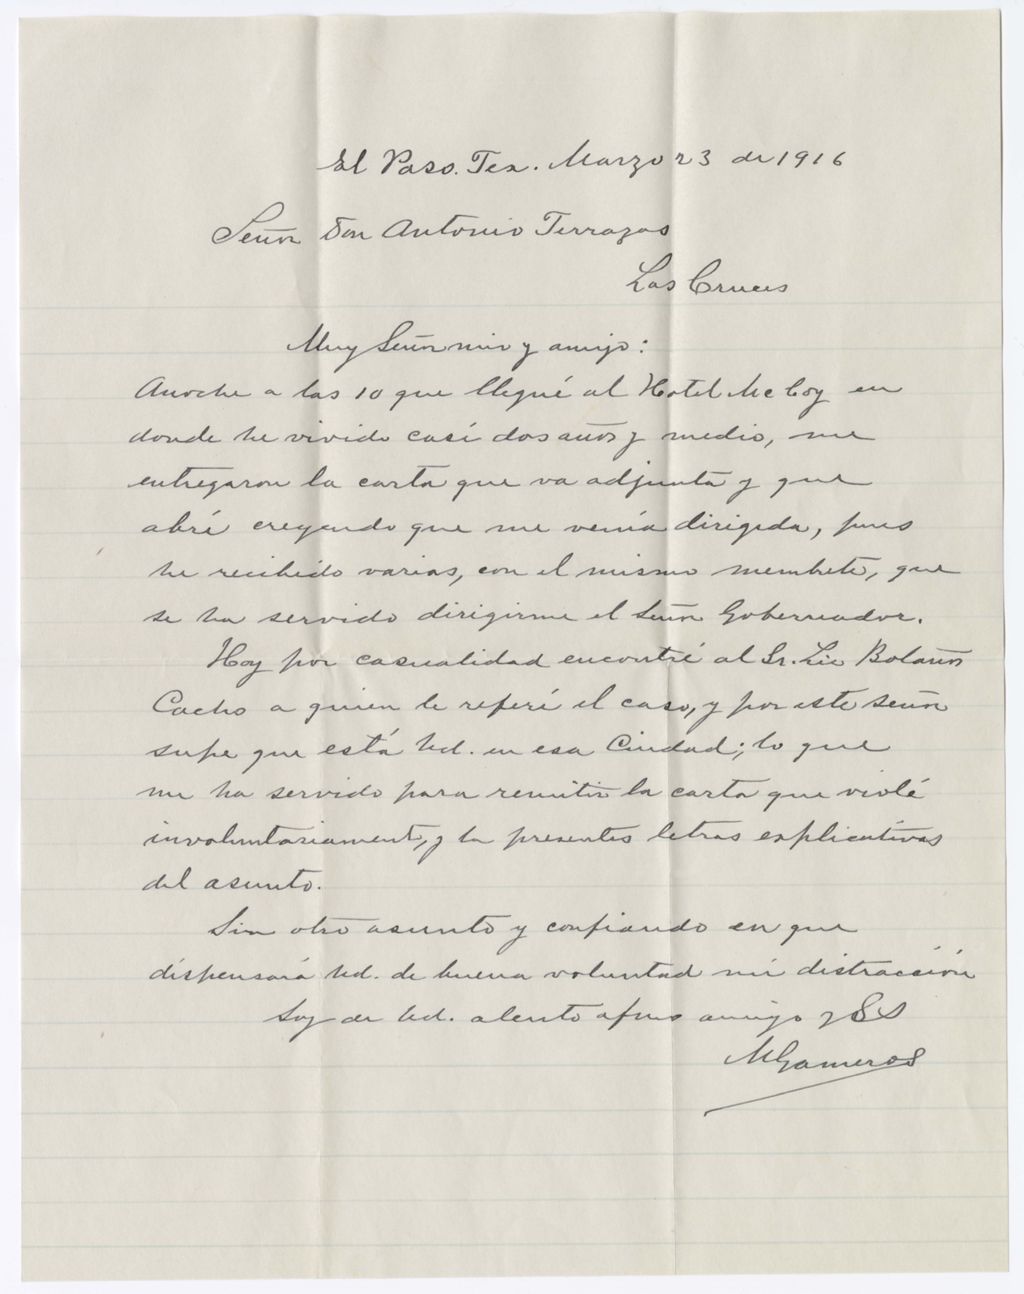 El Paso. Tex. Marzo 23 de 1916
Señor Don Antonio Terrazas
Las Cruces
Muy Señor mio y amigo:
Anoche a las 10 que llegué al Hotel McCoy en
donde he vivido casi dos años y medio, me
entregaron la carta que va adjunta y que
abrí creyendo que me venía dirigida, pues
he recibido varias, con el mismo membrete, que
se ha servido dirigirme el Señor Gobernador.
Hoy por casualidad encontré al Sr. Lic Bolaños
Cacho a quien le referí el caso, y por este señor
supe que está Ud. en esa Ciudad; lo que
me ha servido para remitir la carta que violé
involuntariamente, y la presentes letras explicativas
del asunto.
Sin otro asunto y confiando en que
dispensará Ud. de buena voluntad mi distracción
Soy de Ud. atento afmo amigo y SS
MGameros